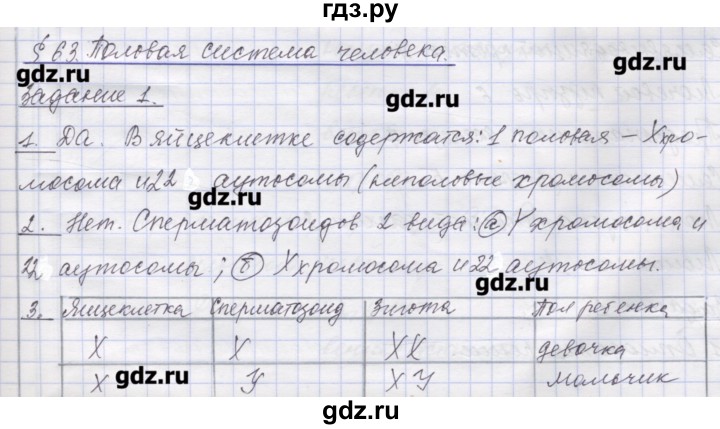 гдз.ру
§ 63. Половая система человека.
gdz.ru
gdz.ru
Задание 1.
1. Да. В яйцеклетке содержатся: 1 половая – X хро-
мосома и 22 аутосомы (неполовые хромосомы)
gdz.ru
2. Нет. Сперматозоидов 2 вида: а Y хромосома и
22 аутосомы; б X хромосома и 22 аутосомы.
gdz.ru
3. Яйцеклетка Сперматозоид Зигота Пол ребенка
X X XX девочка
X У XУ мальчик
gdz.ru
gdz.ru
gdz.ru